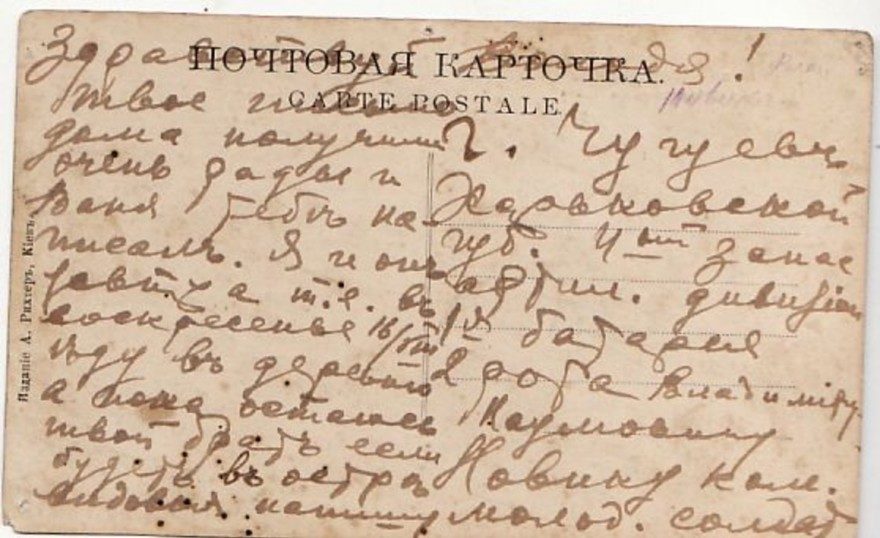 ПОЧТОВАЯ КАРТОЧКА.
CARTE POSTALE
Изданіе А. Рихтеръ, Кіевъ.
твое письмо
дома получили
очень рады и
Ваня тебѣ на-
писалъ. Я и онъ
завтра т.е. въ
воскресенье 16/VIII
ѣду въ деревню
а пока остаюсь
твой братъ если
будетъ въ
напишу
г. Чугуевъ
Харьковской
губ. 4ый запас
артил. дивизіон
1я батарея
2 рота Владиміру
Наумовичу
Новику ком.
молод. солдат